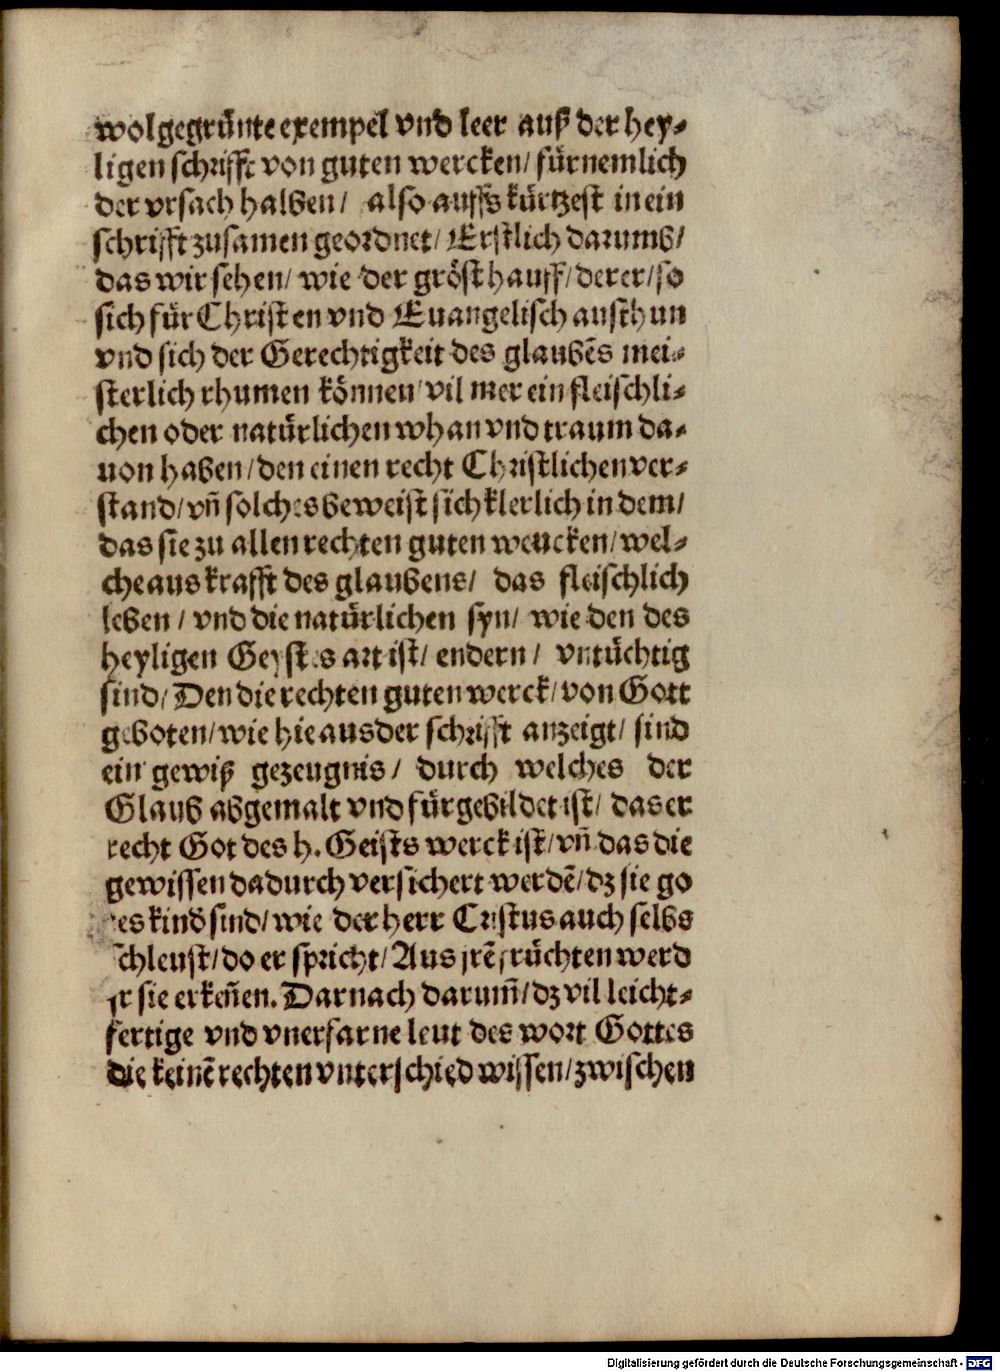 wolgegrünte exempel vnd leer auß der hey⸗
ligen schrifft von guten wercken/ fürnemlich
der vrsach halben/ also auffs kürtzest in ein
schrifft zusamen geordnet/ Erstlich darumb/
das wir sehen/ wie der gröst hauff/ derer/ so
sich für Christen vnd Euangelisch austhun
vnd sich der Gerechtigkeit des glaubēs mei⸗
sterlich rhumen können/ vil mer ein fleischli⸗
chen oder natürlichen whan vnd traum da⸗
uon haben/ den einen recht Christlichen ver⸗
stand/ vñ solches beweist sich klerlich in dem/
das sie zu allen rechten guten weucken/ wel⸗
che aus krafft des glaubens/ das fleischlich
leben/ vnd die natürlichen syn/ wie den des
heyligen Geystes art ist/ endern/ vntüchtig
sind/ Den die rechten guten werck/ von Gott
geboten/ wie hie aus der schrifft anzeigt/ sind
ein gewiß gezeugnis/ durch welches der
Glaub abgemalt vnd fürgebildet ist/ das er
recht Got des h. Geists werck ist/ vñ das die
gewissen dadurch versichert werdē/ dz sie go
es kind sind/ wie der herr Cristus auch selbs
schleust/ do er spricht/ Aus jrē früchten werd
jr sie erkeñen. Darnach darum̃/ dz vil leicht⸗
fertige vnd vnerfarne leut des wort Gottes
die keinē rechten vnterschied wissen/ zwischen
Digitalisierung gefördert durch die Deutsche Forschungsgemeinschaft - DFG